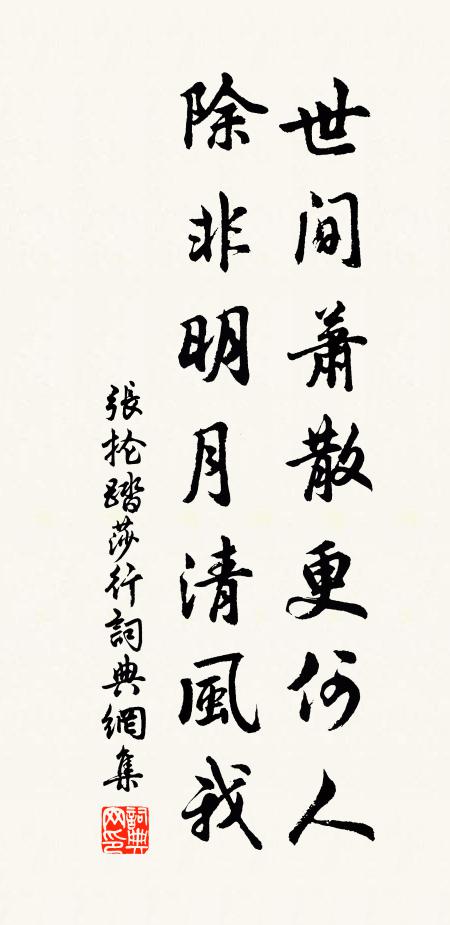 世间萧散更何人
除非明月清風我
張抡踏莎行詞典網集
詞典网印